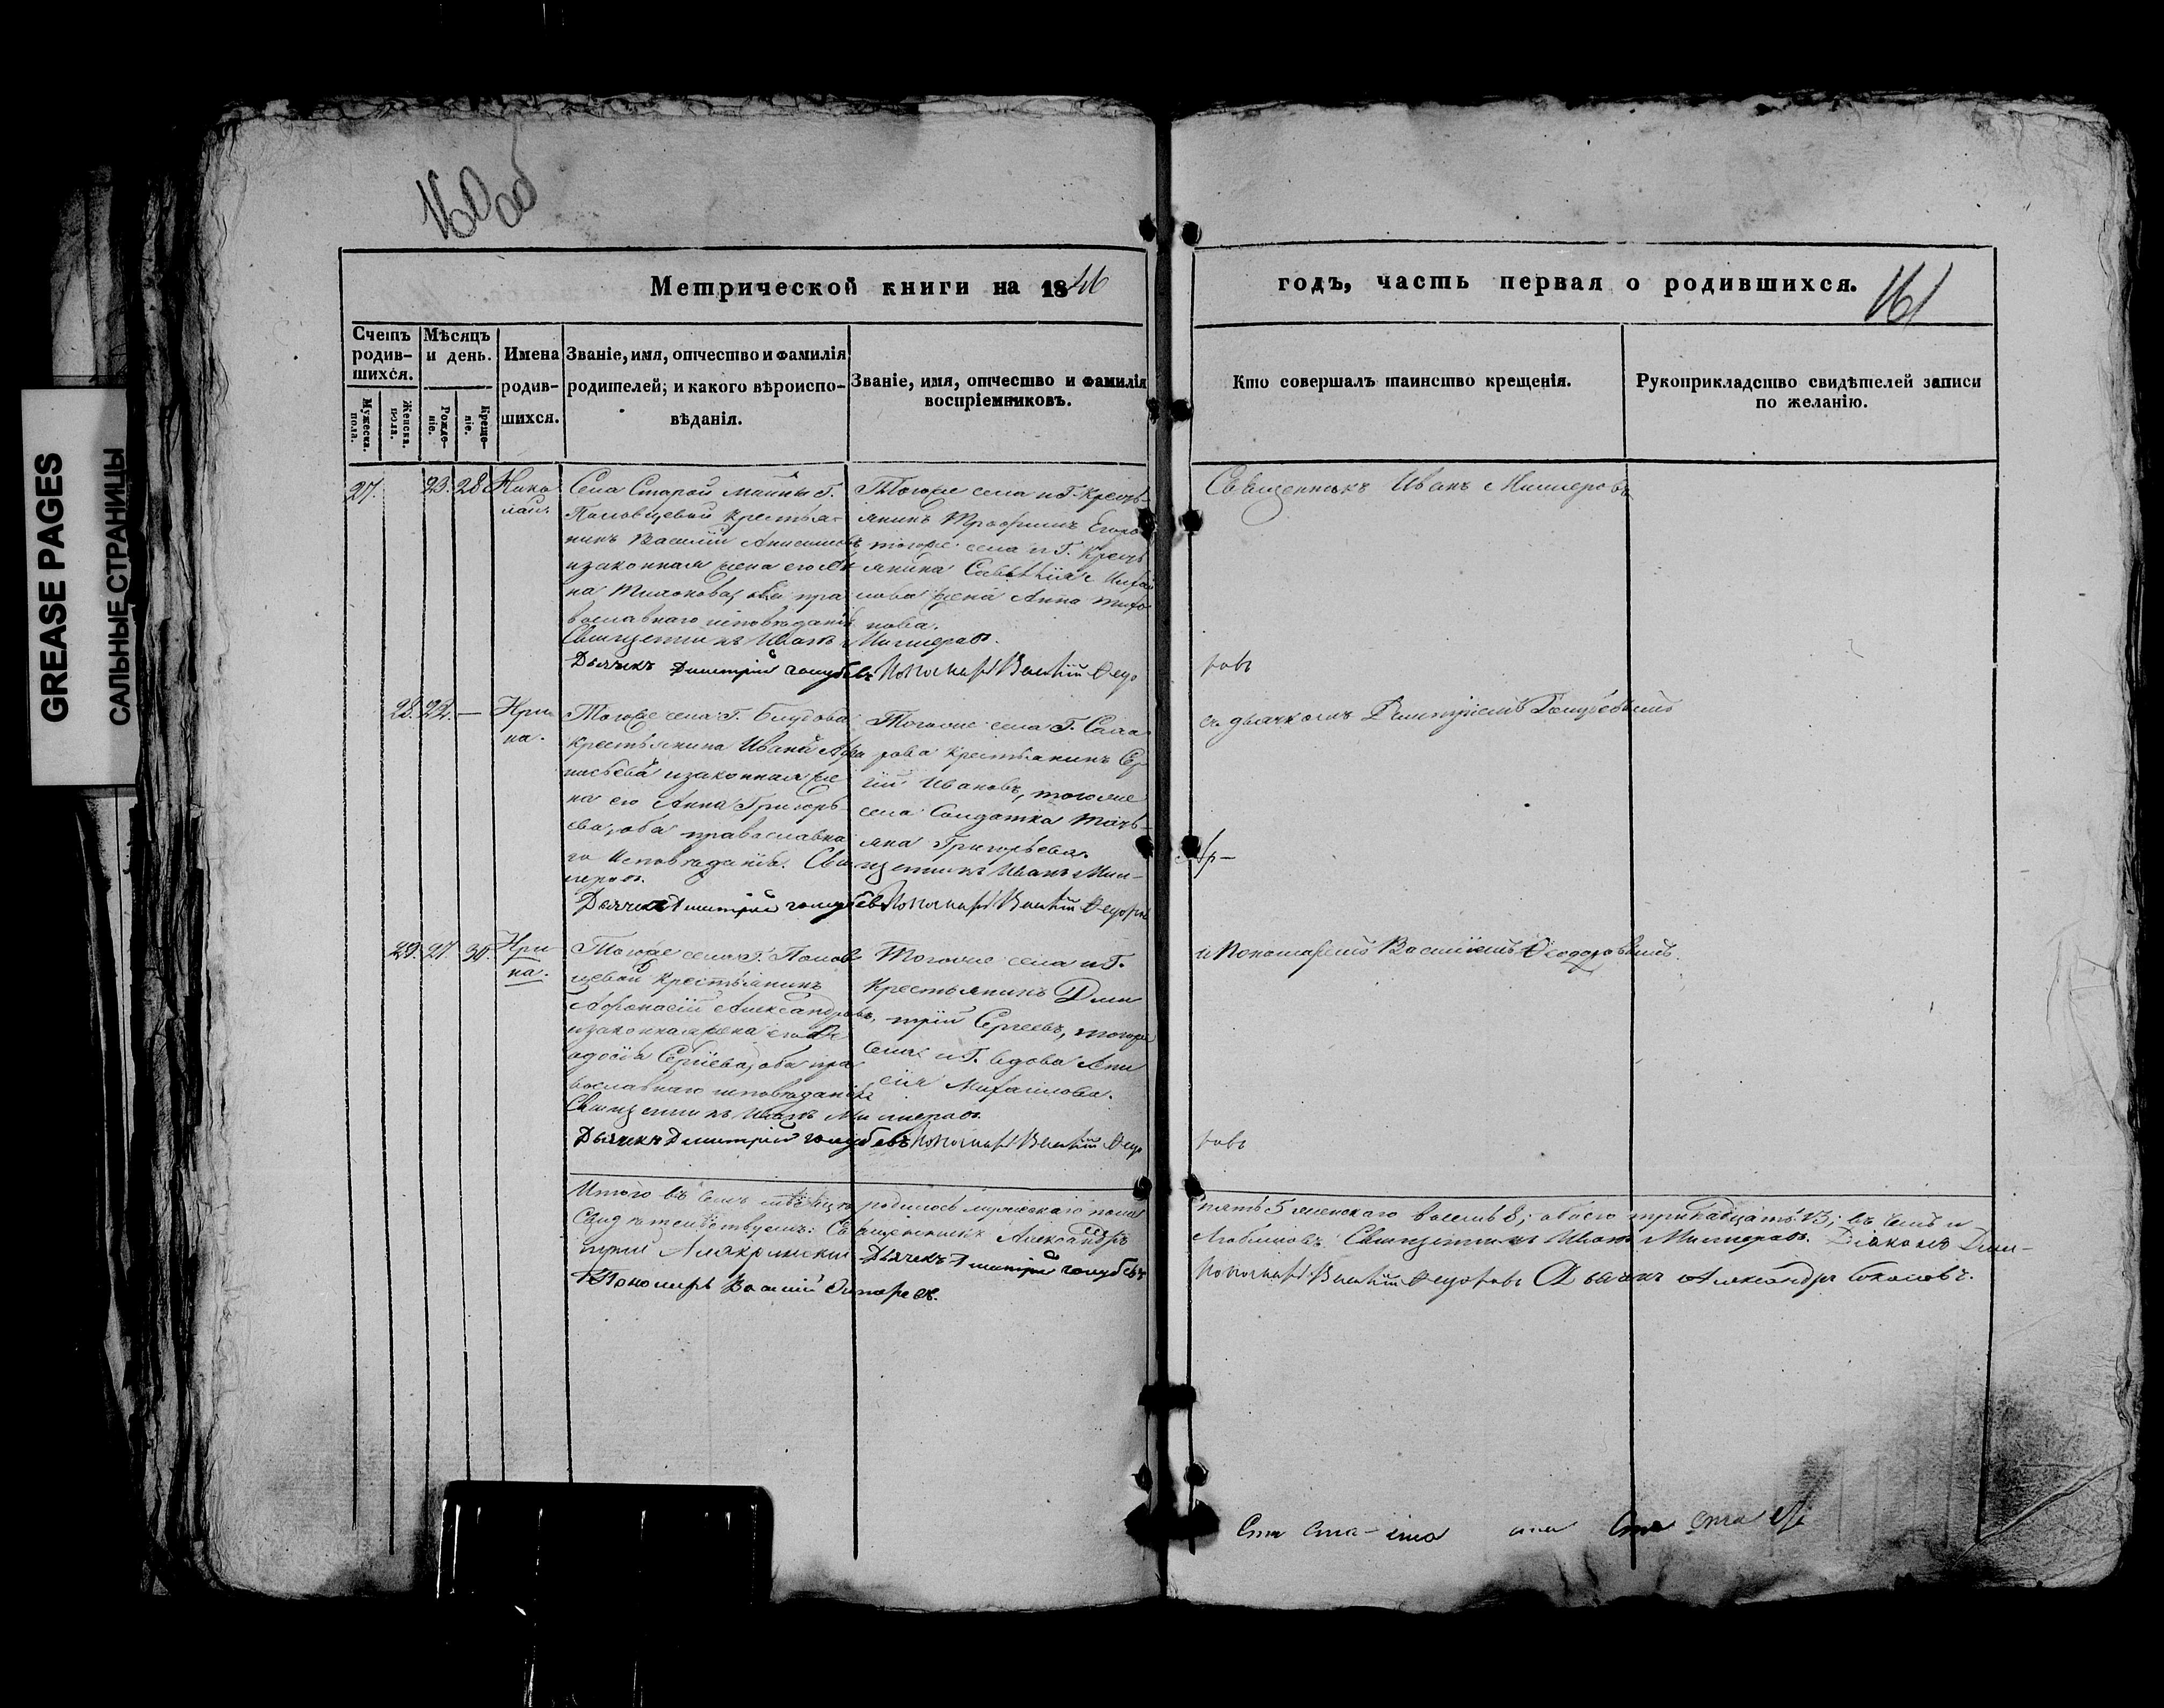 GREASE PAGES
САЛЬНЫЕ СТРАНИЦЫ
160 об
Метрической книги на 1846
годъ, часть первая о родившихся.
161
Счетъ родив-шихся.
Мужеска. пола.
Женска. пола.
Мѣсяцъ и день.
Рожде-ніе.
Креще-ніе.
Имена родив-шихся.
Званіе, имя, отчество и фамилія родителей; и какого вѣроиспо-вѣданія.
Званіе, имя, отчество и фамилія воспріемниковъ.
Кто совершалъ таинство крещенія.
Рукоприкладство свидѣтелей записи по желанію.
27. 23. 28
Нико
лай
Села Старой Майны Г.
крестья-
нинъ Василій Анисимовъ
и законная жена его
на оба пра
вославнаго исповѣданія
Священникъ Иванъ Миллеровъ.
Дьячекъ Димитрій Голубевъ
Тогоже села и Г. Кресть-
янинъ Трофимъ Егоро
тогоже села и Г. Кресть
янина
лова жена Анна Тихо
нова.
Пономарь Василій Ѳедо
Священникъ Иванъ Миллеровъ
ровъ
28. 22. —
Ири
на.
Тогоже села Г.
Крестьянина Ивана Афа
насьева и законная же
на его Анна Григорь
ева, оба православна
го исповѣданія. Священникъ Иванъ Мил-
леровъ.
Дьячекъ Димитрій Голубевъ
Тогоже села Г.
рова Крестьянинъ Сер
гій Ивановъ, тогоже
села Солдатка Тать-
яна Григорьева.
Пономарь Василій Ѳедоровъ
съ дьячкомъ Димитріемъ Голубевымъ
29. 27. 30.
Ири-
на.
Тогоже села Г.
цевой Крестьянинъ
Афонасій Александровъ,
и законная жена его Ѳе
одосія Сергіева, оба пра
вославнаго исповѣданія
Священникъ Иванъ Миллеровъ.
Дьячекъ Димитрій Голубевъ
Тогоже села и Г.
Крестьянинъ Дми
трій Сергеевъ, тогоже
села и Г. вдова Ани
сія Михайлова.
Пономарь Василій Ѳедо
и Пономаремъ Василіемъ Ѳеодоровымъ.
ровъ
Итого въ семъ мѣсяцѣ родилось мужескаго пола пять 5 женскаго восемь 8; обоего тринадцать 13; въ чемъ и
Свидѣтельствуемъ: Священникъ Александръ Священникъ Иванъ Миллеровъ. Діаконъ Дми-
Дьячекъ Димитрій Голубевъ Пономарь Василій Ѳедоровъ Дьячекъ Александръ Соколовъ.
Пономарь Василій